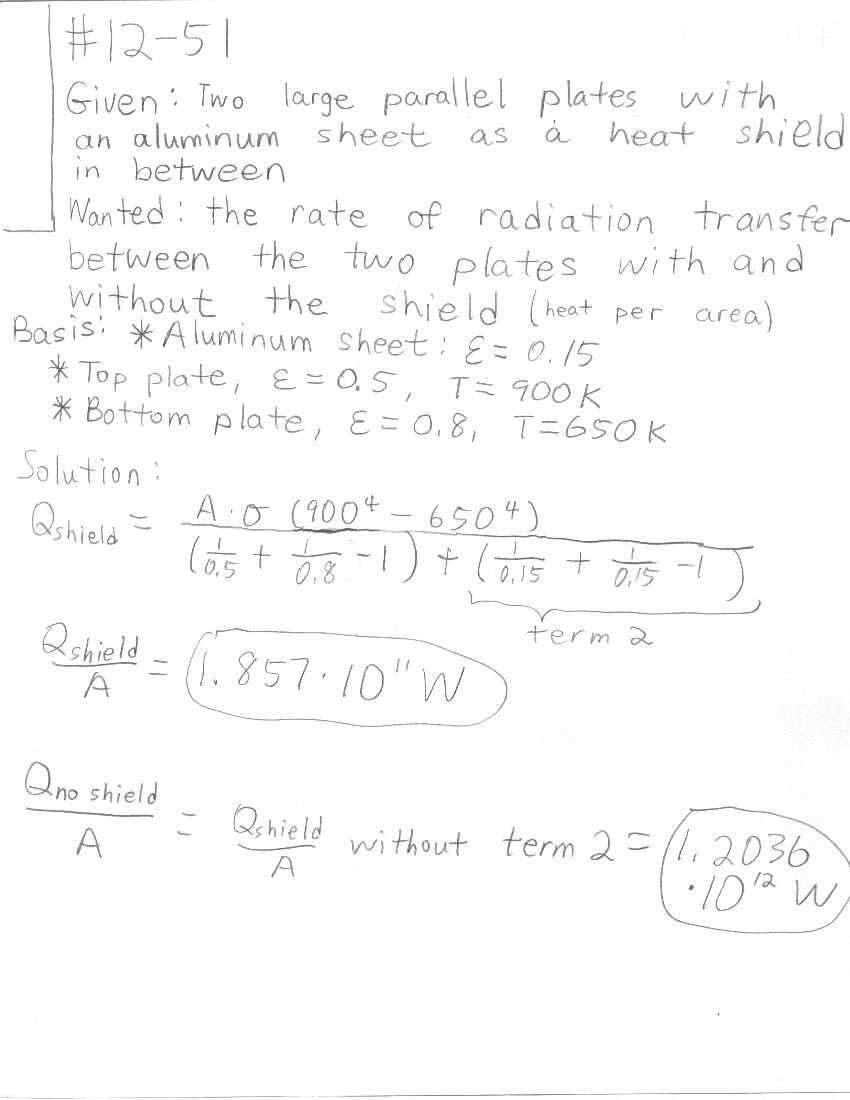 #12-51
Given: Two large parallel plates with
an aluminum sheet as a heat shield
in between
Wanted: the rate of radiation transfer
between the two plates with and
without the shield (heat per area)
Basis: * Aluminum sheet: ε = 0.15
* Top plate, ε = 0.5, T = 900K
* Bottom plate, ε = 0.8, T=650K
Solution:
Qshield = A·σ (900⁴ - 650⁴) / (1/0.5 + 1/0.8 - 1) + (1/0.15 + 1/0.15 - 1)
term 2
Qshield/A = 1.857·10¹¹ W
Qno shield/A = Qshield/A without term 2 = 1.2036
·10¹² W